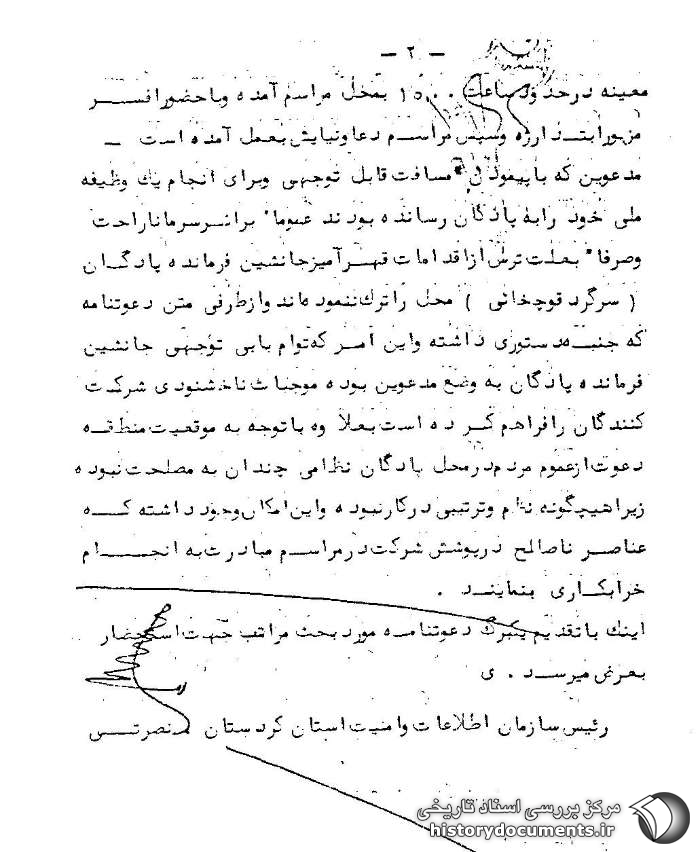 — ۲ —
معینه درحدود ساعت ۱۵۰۰ بمحل مراسم آمده و باحضور افسر
مزبور ابتدا رژه و سپس مراسم دعا و نیایش بعمل آمده است —
مدعوین که با پیمودن مسافت قابل توجهی وبرای انجام یك وظیفه
ملی خود را به پادگان رسانده بودند عموما" براثر سرما ناراحت
وصرفا" بعلت ترس از اقدامات قهر آمیز جانشین فرمانده پادگان
( سرگرد قوچخانی ) محل را ترك ننموده اند و ازطرفی متن دعوتنامه
که جنبه دستوری داشته واین امر که توام بابی توجهی جانشین
فرمانده پادگان به وضع مدعوین بوده موجبات ناخشنودی شرکت
کنندگان را فراهم کرده است بعلاوه باتوجه به موقعیت منطقه
دعوت ازعموم مردم در محل پادگان نظامی چندان به مصلحت نبوده
زیرا هیچگونه نظم وترتیبی درکار نبوده و این امکان وجود داشته که
عناصر ناصالح درپوشش شرکت در مراسم مبادرت به انجام
خرابکاری بنمایند .
اینك باتقدیم یکبرگ دعوتنامه مورد بحث مراتب جهت استحضار
بعرض میرسد . ی
رئیس سازمان اطلاعات وامنیت استان کردستان . نصرتی
مرکز بررسی اسناد تاریخی
historydocuments.ir